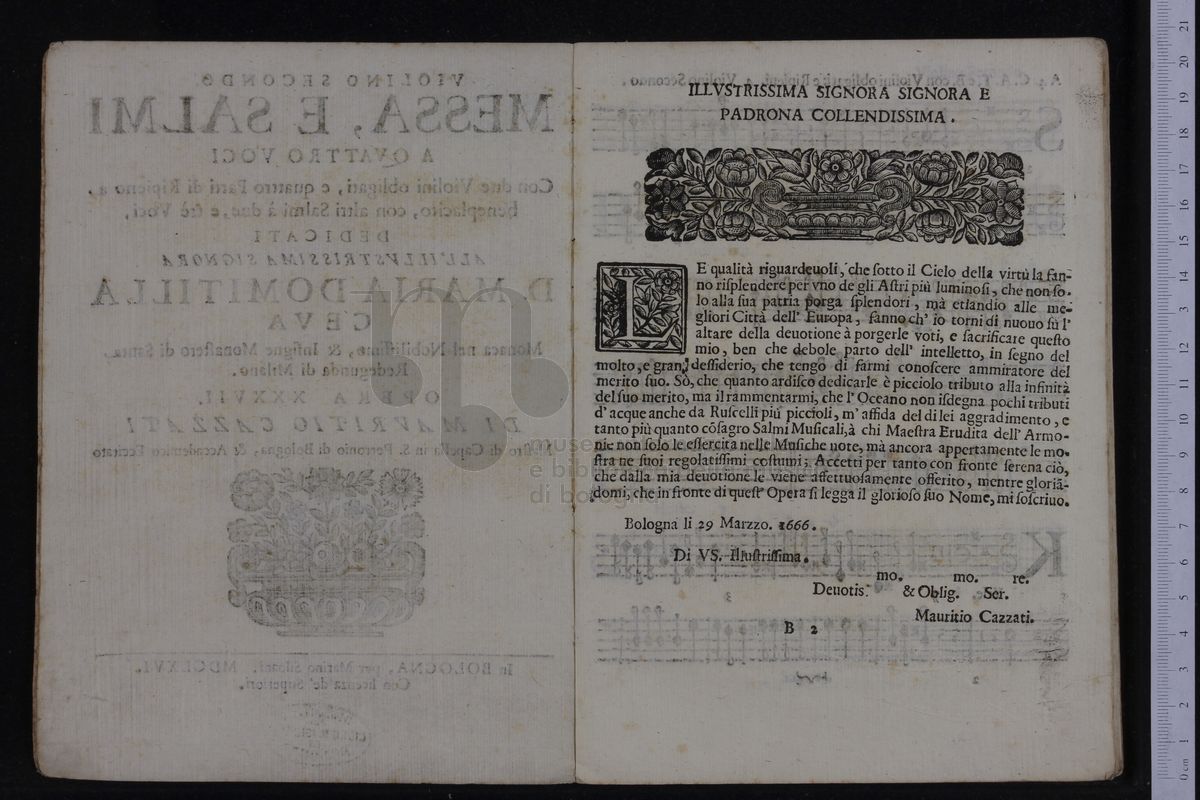 VIOLINO SECONDO
MESSA, E SALMI
A QVATTRO VOCI
Con due Violini obligati, e quattro Parti di Ripieno a
beneplacito, con altri Salmi à due, e trè Voci,
DEDICATI
ALL'ILLVSTRISSIMA SIGNORA
D. MARIA DOMITILLA
CEVA
Monaca nel Nobilissimo, & Insigne Monastero di Santa
Redegunda di Milano.
OPERA XXXVII.
DI MAVRITIO CAZZATI
Mastro di Capella in S. Petronio di Bologna, & Academico Eccitato
In BOLOGNA, per Marino Siluani. MDCLXVI.
Con licenza de' Superiori.
ILLVSTRISSIMA SIGNORA SIGNORA E
PADRONA COLLENDISSIMA.
LE qualità riguardeuoli, che sotto il Cielo della virtù la fan-
no risplendere per vno de gli Astri più luminosi, che non so-
lo alla sua patria porga splendori, mà etiandio alle me-
gliori Città dell' Europa, fanno ch' io torni di nuouo sù l'
altare della deuotione à porgerle voti, e sacrificare questo
mio, ben che debole parto dell' intelletto, in segno del
molto, e gran, dessiderio, che tengo di farmi conoscere ammiratore del
merito suo. Sò, che quanto ardisco dedicarle è picciolo tributo alla infinità
del suo merito, ma il rammentarmi, che l' Oceano non isdegna pochi tributi
d' acque anche da Ruscelli più piccioli, m' affida del di lei aggradimento, e
tanto più quanto cōsagro Salmi Musicali, à chi Maestra Erudita dell' Armo-
nie non solo le essercita nelle Musiche note, mà ancora appertamente le mo-
stra ne suoi regolatissimi costumi; Accetti per tanto con fronte serena ciò,
che dalla mia deuotione le viene affettuosamente offerito, mentre gloriā-
domi, che in fronte di quest' Opera si legga il glorioso suo Nome, mi soscriuo.
Bologna li 29 Marzzo. 1666.
Di VS. Illustrissima.
mo. mo. re.
Deuotis. & Oblig. Ser.
Mauritio Cazzati.
B 2
museo
e biblioteca
di bologna